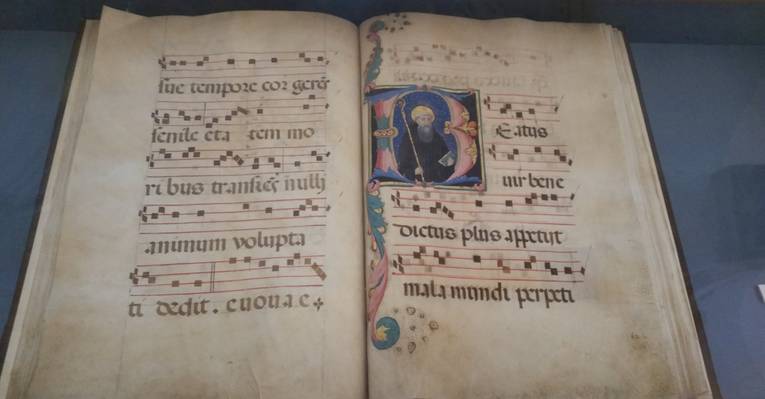 sue tempore cor gerēs
senile eta tem mo
ri bus transiēs nulli
animum volupta
ti dedit. euouae
BEatus
uir bene
dictus plus appetiit
mala mundi perpeti